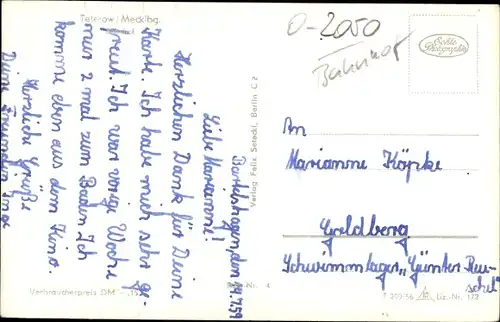 Teterow/Mecklbg.
O-2050
Bahnhof
Echte Photographie
Bartelshagen, den 14.7.59
Liebe Marianne!
Herzlichen Dank für Deine
Karte. Ich habe mich sehr ge-
freut. Ich war vorige Woche
nur 2 mal zum Baden. Ich
komme eben aus dem Kino.
Herzliche Grüße
Deine Freundin Inge
Verbraucherpreis DM
Verlag Felix Setecki, Berlin C 2
An
Marianne Köpke
Goldberg
Schwimmlager „Günter Reu-
schel"
Liz.-Nr. 172